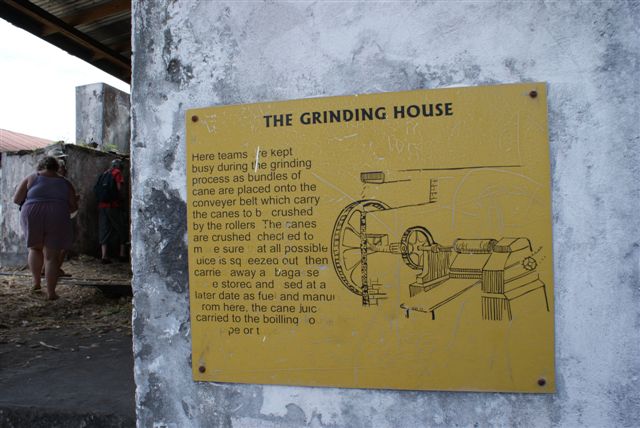 THE GRINDING HOUSE
Here teams are kept
busy during the grinding
process as bundles of
cane are placed onto the
conveyer belt which carry
the canes to b crushed
by the rollers The canes
are crushed checked to
m e sure at all possible
juice is sq eezed out then
carrie away a baga se
e stored and sed at a
later date as fuel and manu
rom here, the cane juic
carried to the boilling o
pe or t